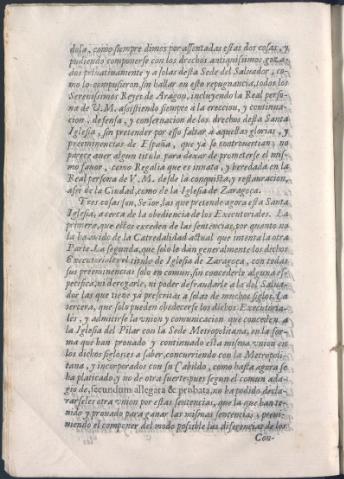 dola, como siempre dimos por assentadas estas dos cosas, y
pudiendo componerse con los drechos antiquissimos goza-
dos priuatiuamente y a solas desta Sede del Saluador, co-
mo lo compusieron, sin hallar en esto repugnancia, todos los
Serenissimos Reyes de Aragon, incluyendo la Real perso-
na de V.M. assistiendo siempre à la ereccion, y continua-
cion, defensa, y conseruacion de los drechos desta Santa
Iglesia, sin pretender por esso faltar à aquellas glorias, y
preeminencias de España, que yà se controuertian; no
parece auer algun titulo para dexar de prometerse el mis-
mo fauor, como Regalia que es innata, y heredada en la
Real persona de V.M. desde la conquista, y restauracion,
assi de la Ciudad, como de la Iglesia de Zaragoça.
Tres cosas son, Señor, las que pretende agora esta Santa
Iglesia, a cerca de la obediencia de los Executoriales. La
primera, que ellos exceden de las sentencias, por quanto no
la ha auido de la Catredalidad actual que intenta la otra
Parte. La segunda, que solo le dàn generalmente los dichos
Executoriales el titulo de Iglesia de Zaragoça, con todas
sus preeminencias solo en comun, sin concederle alguna es-
pecifica, ni derogarle, ni poder defraudarle a la del Salua-
dor las que tiene yà prescritas a solas de muchos siglos. La
tercera, que solo pueden obedecerse los dichos Executoria-
les, y admitirse la vnion y comunicacion que conceden a
la Iglesia del Pilar con la Sede Metropolitana, en la for-
ma que han prouado y continuado esta misma vnion en
los dichos siglos: es a saber, concurriendo con la Metropoli-
tana, y incorporados con su Cabildo, como hasta agora se
ha platicado, y no de otra suerte: pues segun el comun ada-
gio de, secundum allegata & probata, no ha podido decla-
rarseles otra vnion por estas sentencias, que la que han te-
nido y prouado para ganar las mismas sentencias, preui-
niendo el componer del modo possible las diferencias de los
Con-